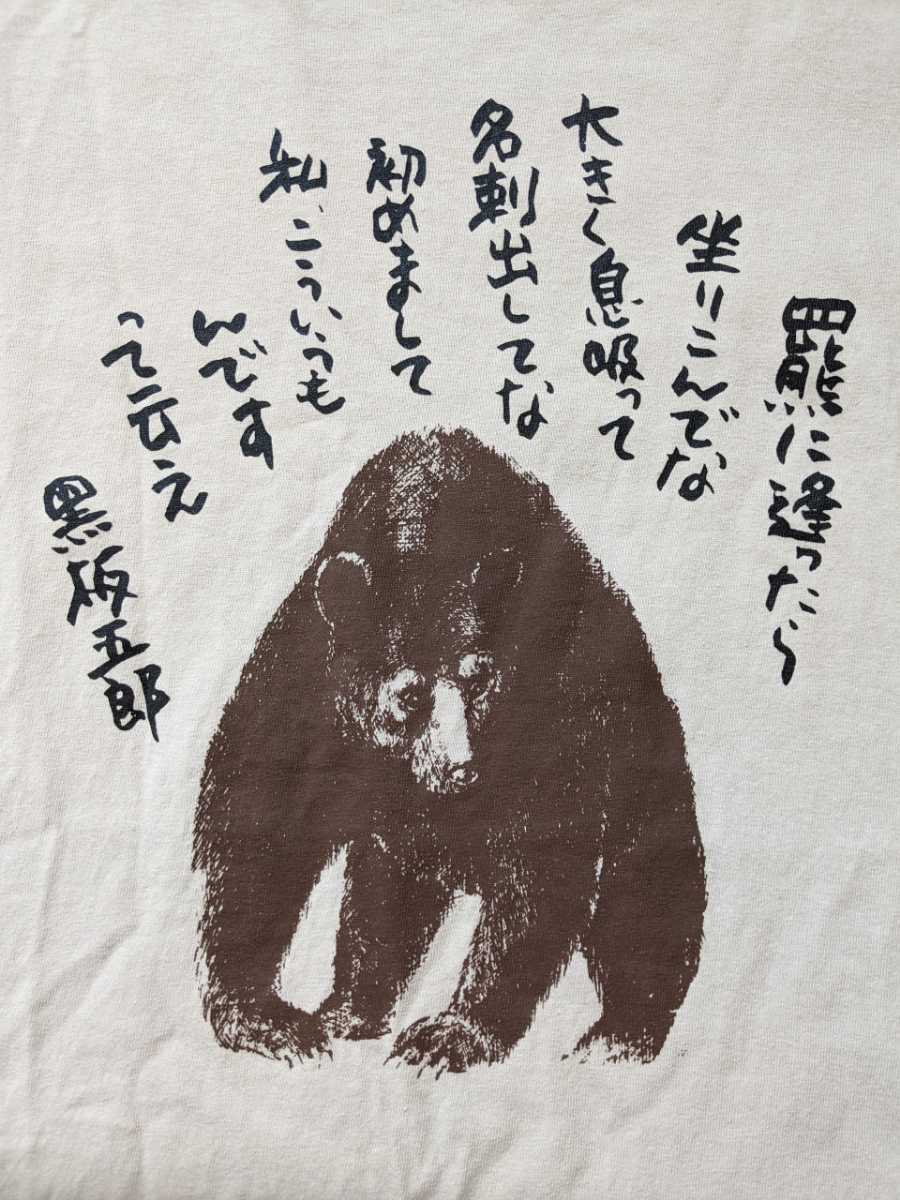 羆に逢ったら
坐りこんでな
大きく息吸って
名刺出してな
初めまして
私、こういつも
んです
って云え
黒板五郎